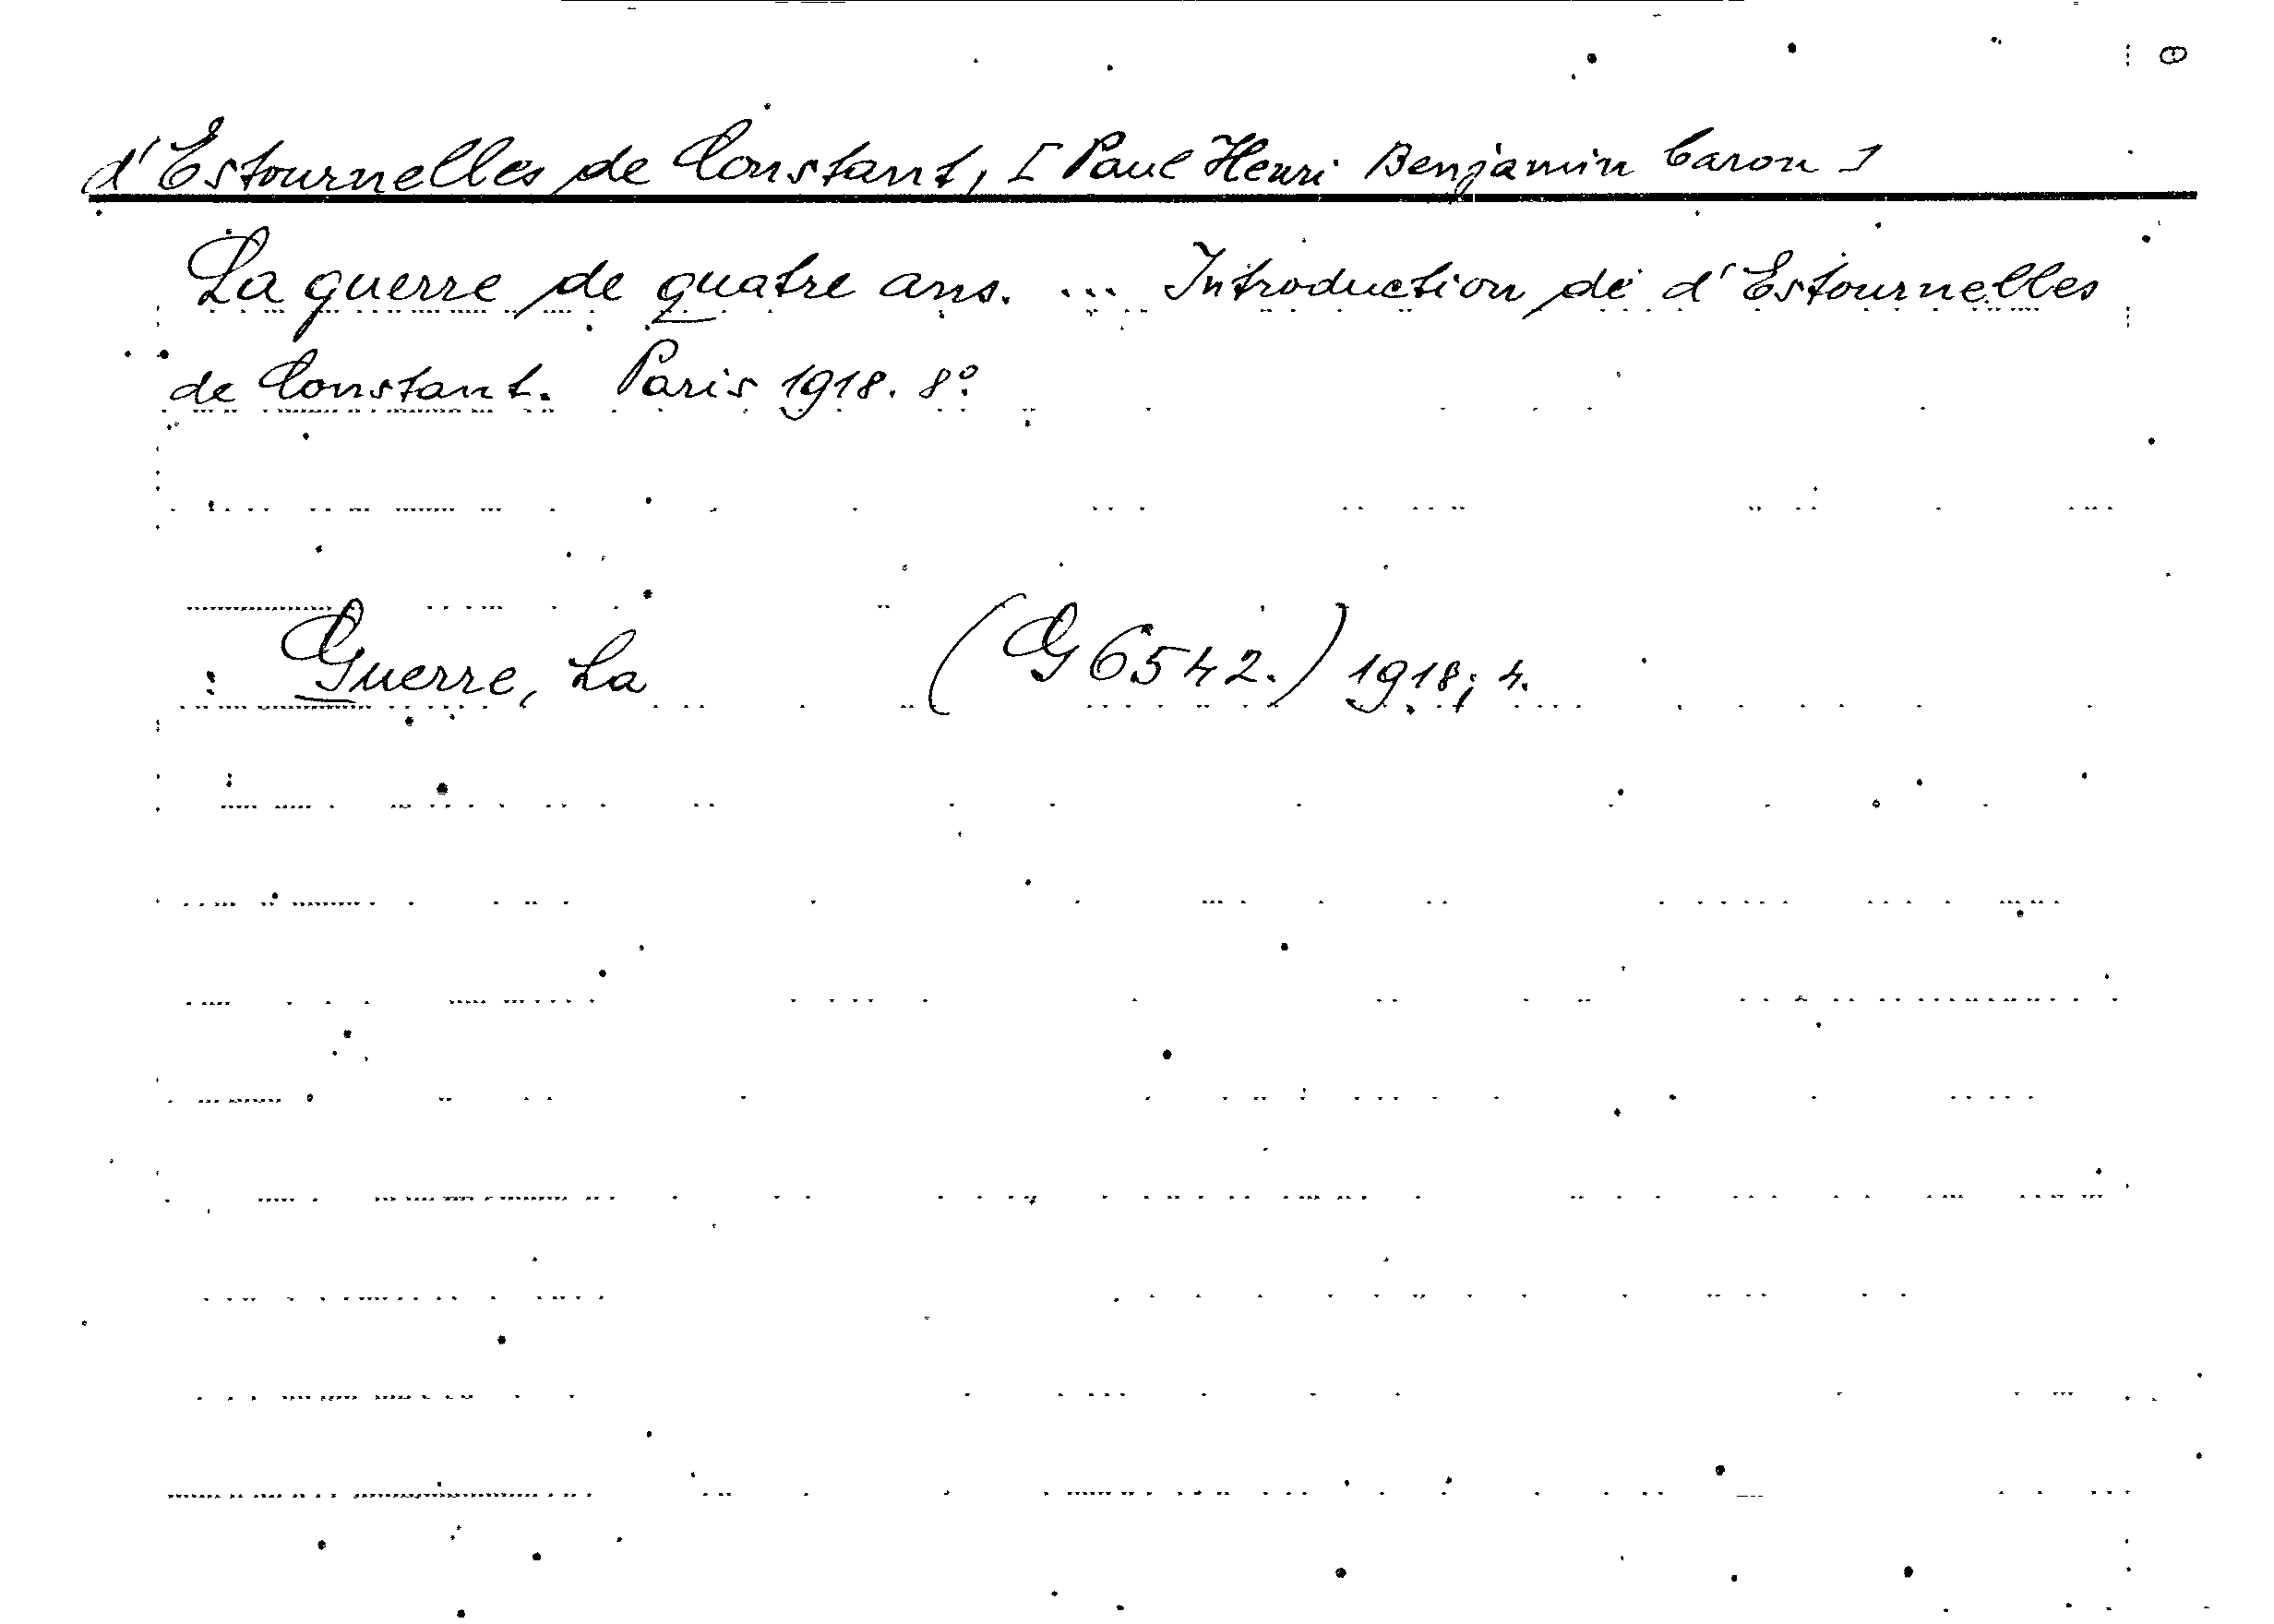 d'Estournelles de Constant, [Paul Henri Benjamin baron]
La guerre de quatre ans. ... Introduction de d'Estournelles
de Constant. Paris 1918. 8º
Guerre, La (G 6542.) 1918; 4.